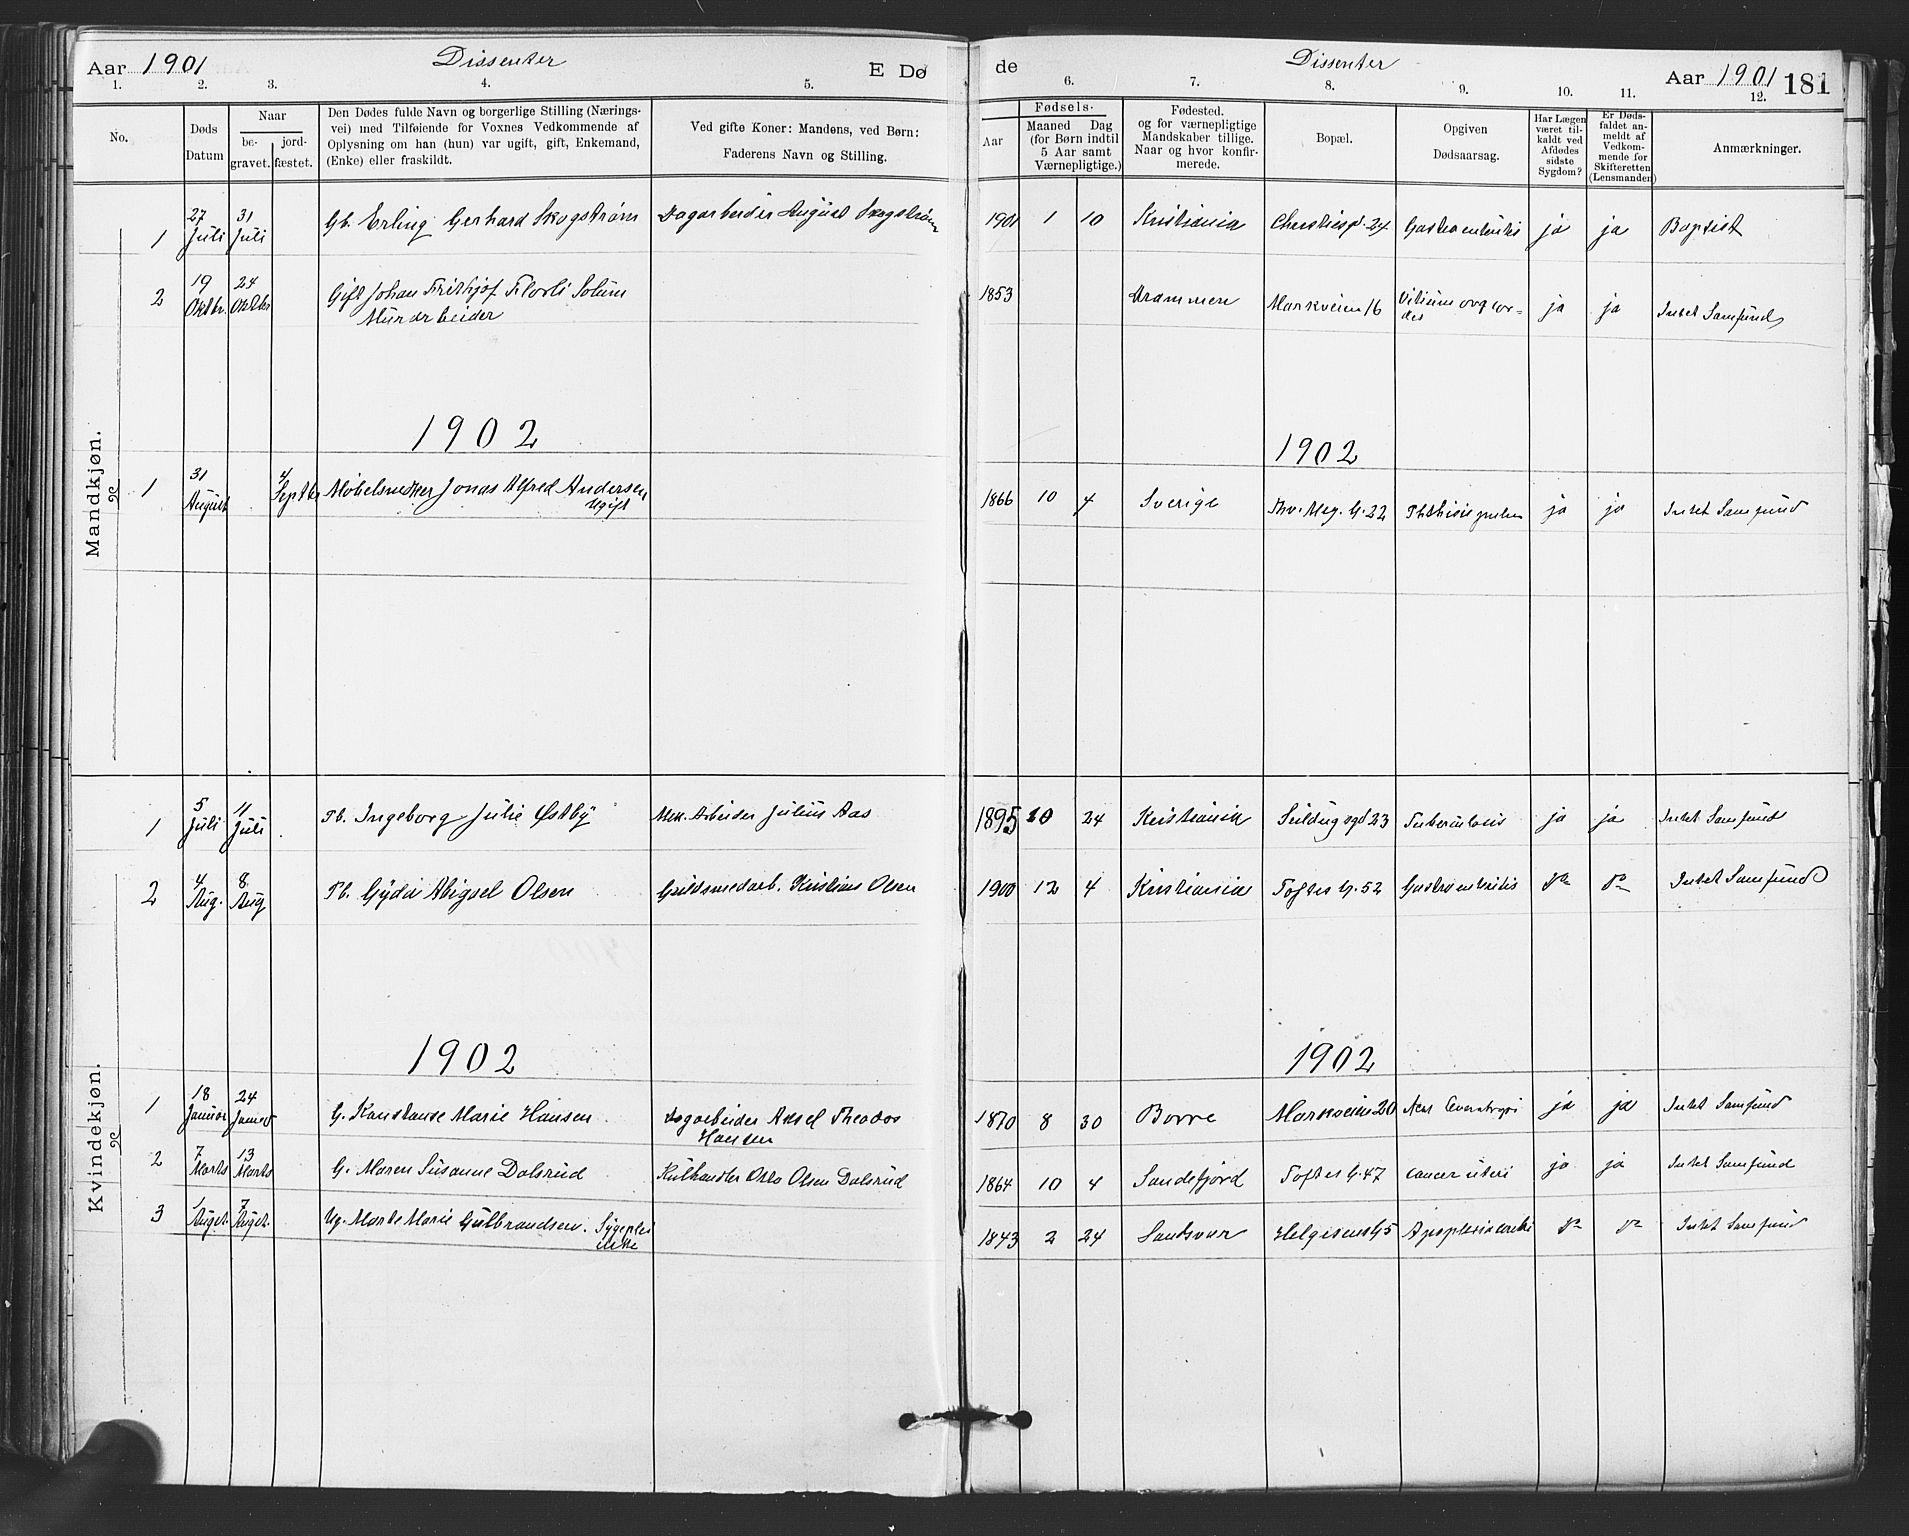 Aar 1901 Dissenter E Dø
de Dissenter Aar 1901 181
1. 2. 3. 4. 5.
6. 7. 8. 9. 10. 11. 12.
No.
Døds
Datum
Naar
be-
gravet.
jord-
fæstet.
Den Dødes fulde Navn og borgerlige Stilling (Nærings-
vei) med Tilføiende for Voxnes Vedkommende af
Oplysning om han (hun) var ugift, gift, Enkemand,
(Enke) eller fraskildt.
Ved gifte Koner: Mandens, ved Børn:
Faderens Navn og Stilling.
Fødsels-
Aar
Maaned Dag
(for Børn indtil
5 Aar samt
Værnepligtige.)
Fødested.
og for værnepligtige
Mandskaber tillige.
Naar og hvor konfir-
merede.
Bopæl.
Opgiven
Dødsaarsag.
Har Lægen
været til-
kaldt ved
Afdødes
sidste
Sygdom?
Er Døds-
faldet an-
meldt af
Vedkom-
mende for
Skifteretten
(Lensmanden)
Anmærkninger.
Mandkjøn.
1 27 Juli 31 Juli Gb. Erling Gerhard Skogstrøm Dagarbeider August Skogstrøm 1901 1 10 Kristiania Christiesgd. 24 Gastroenteritis ja ja Baptist
2 19 Oktbr. 24 Oktbr Gift Johan Frithjof Florli Solum 1853 Drammen Markveien 16 Vitium org cor= ja ja Intet Samfund
Murarbeider
dis
1902 1902
1 31 August 4 Septbr Møbelsnedker Jonas Alfred Andersen 1866 10 4 Sverige Thv. Mey. G. 22 Phthisis pulm ja ja Intet Samfund
Ugift
Kvindekjøn.
1 5 Juli 11 Juli Pb. Ingeborg Julie Østby Mek. Arbeider Julius Aas 1895 10 24 Kristiania Seildugsgd 23 Tuberkulosis ja ja Intet Samfund
2 4 Aug. 8 Aug Pb. Gyda Abigael Olsen Guldsmedarb. Kristian Olsen 1900 12 4 Kristiania Toftes G. 52 Gastroenteritis do do Intet Samfund
1902 1902
1 18 Januar 24 Januar G. Konstanse Marie Hansen Dagarbeider Aksel Theodor 1870 8 30 Borre Markveien 20 ja ja Intet Samfund
Hansen
2 7 Marts 13 Marts G. Maren Susanne Dalsrud Kulhandler Otto Olsen Dalsrud 1864 10 4 Sandefjord Toftes G. 47 Cancer uteri ja ja Intet Samfund
3 1 Augst. 7 Augst. Ug. Marte Marie Gulbrandsen. Sygeplei 1843 2 24 Sandsvær Helgesens G 5 Apoplexia cerebri do do Intet Samfund
erske